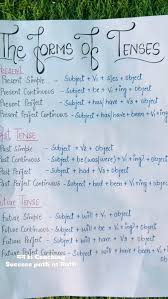 The Forms Of Tenses
Present
Present Simple - Subject + V1 + s/es + object
Present Continuous - Subject + be + V1 + ing + object
Present Perfect - Subject + has/have + V3 + object
Present Perfect Continuous - Subject + has/have + been + V1 + ing + object
Past Tense
Past Simple - Subject + V2 + object
Past Continuous - Subject + be (was/were) + V1 + ing + object
Past Perfect - Subject + had + V3 + object
Past Perfect Continuous - Subject + had + been + V1 + ing + object
Future Tense
Future Simple - Subject + will + V1 + object
Future Continuous - Subject + will + be + V1 + ing + object
Future Perfect - Subject + will + have + V3 + object
Future Perfect Continuous - Subject + will + have + been + V1 + ing + object
Success path